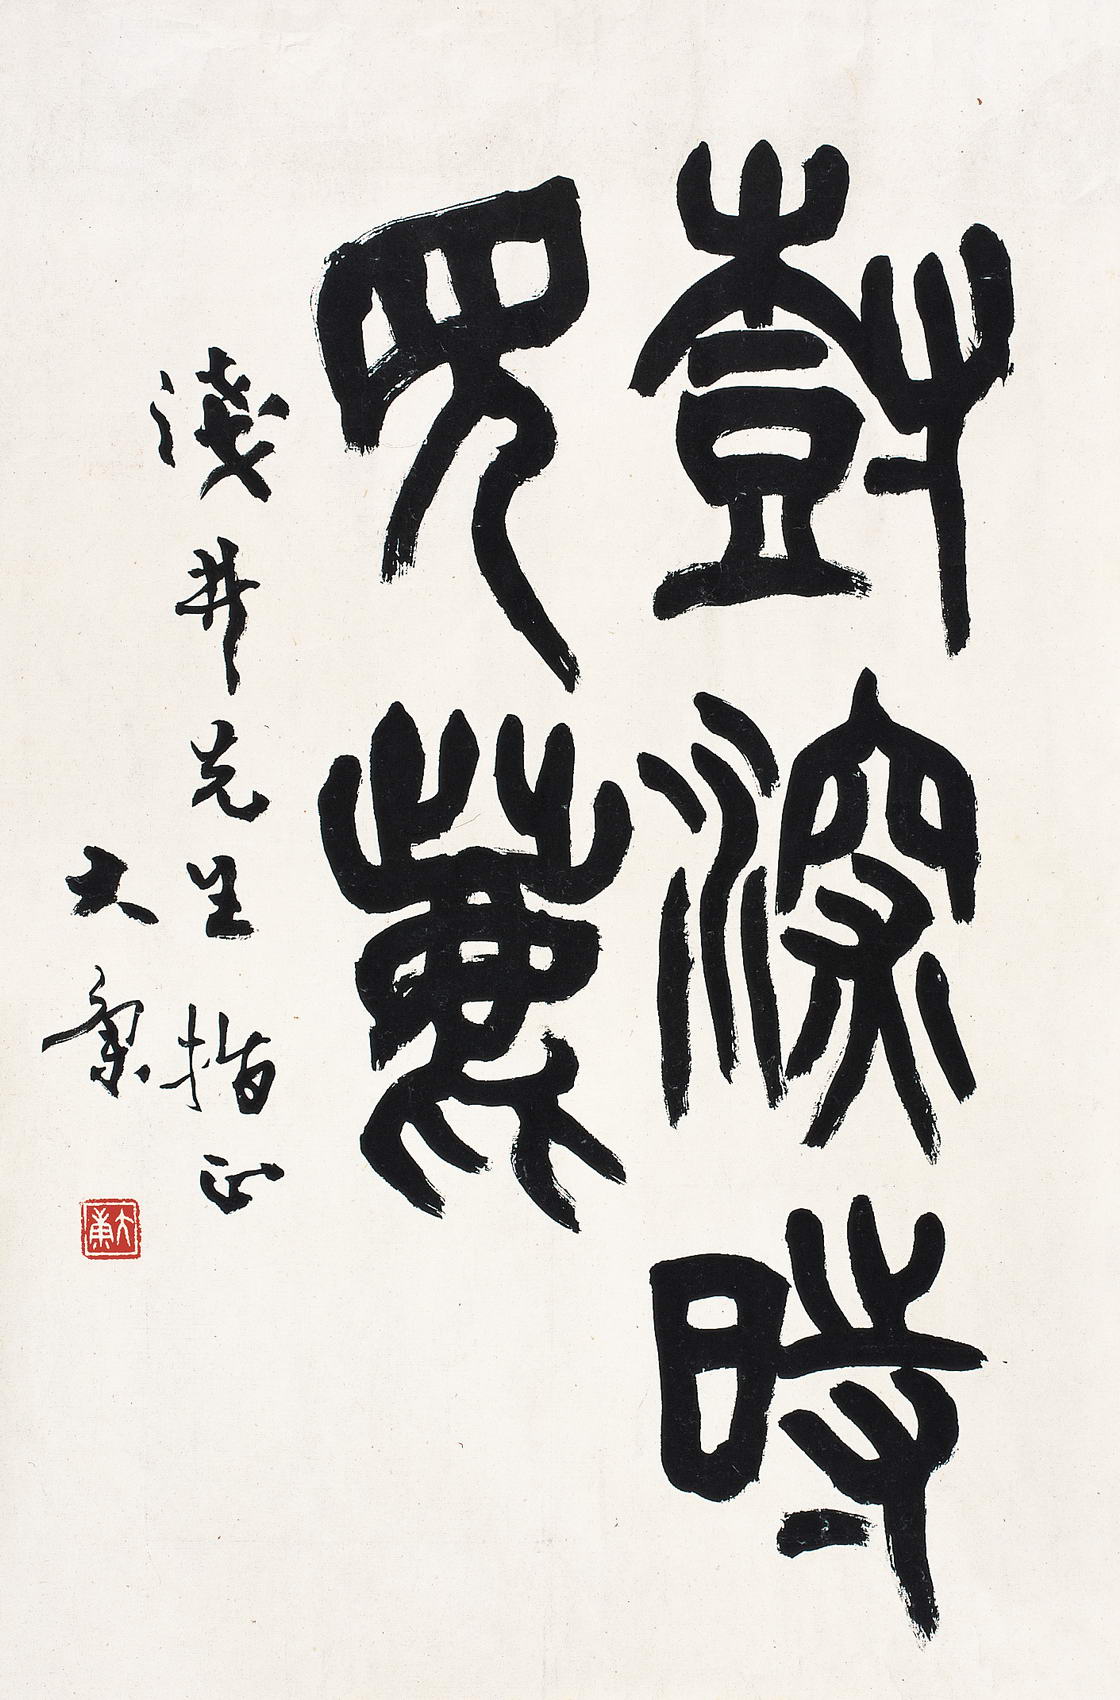 樹深時
見鹿
淺井先生指正
大康
大康